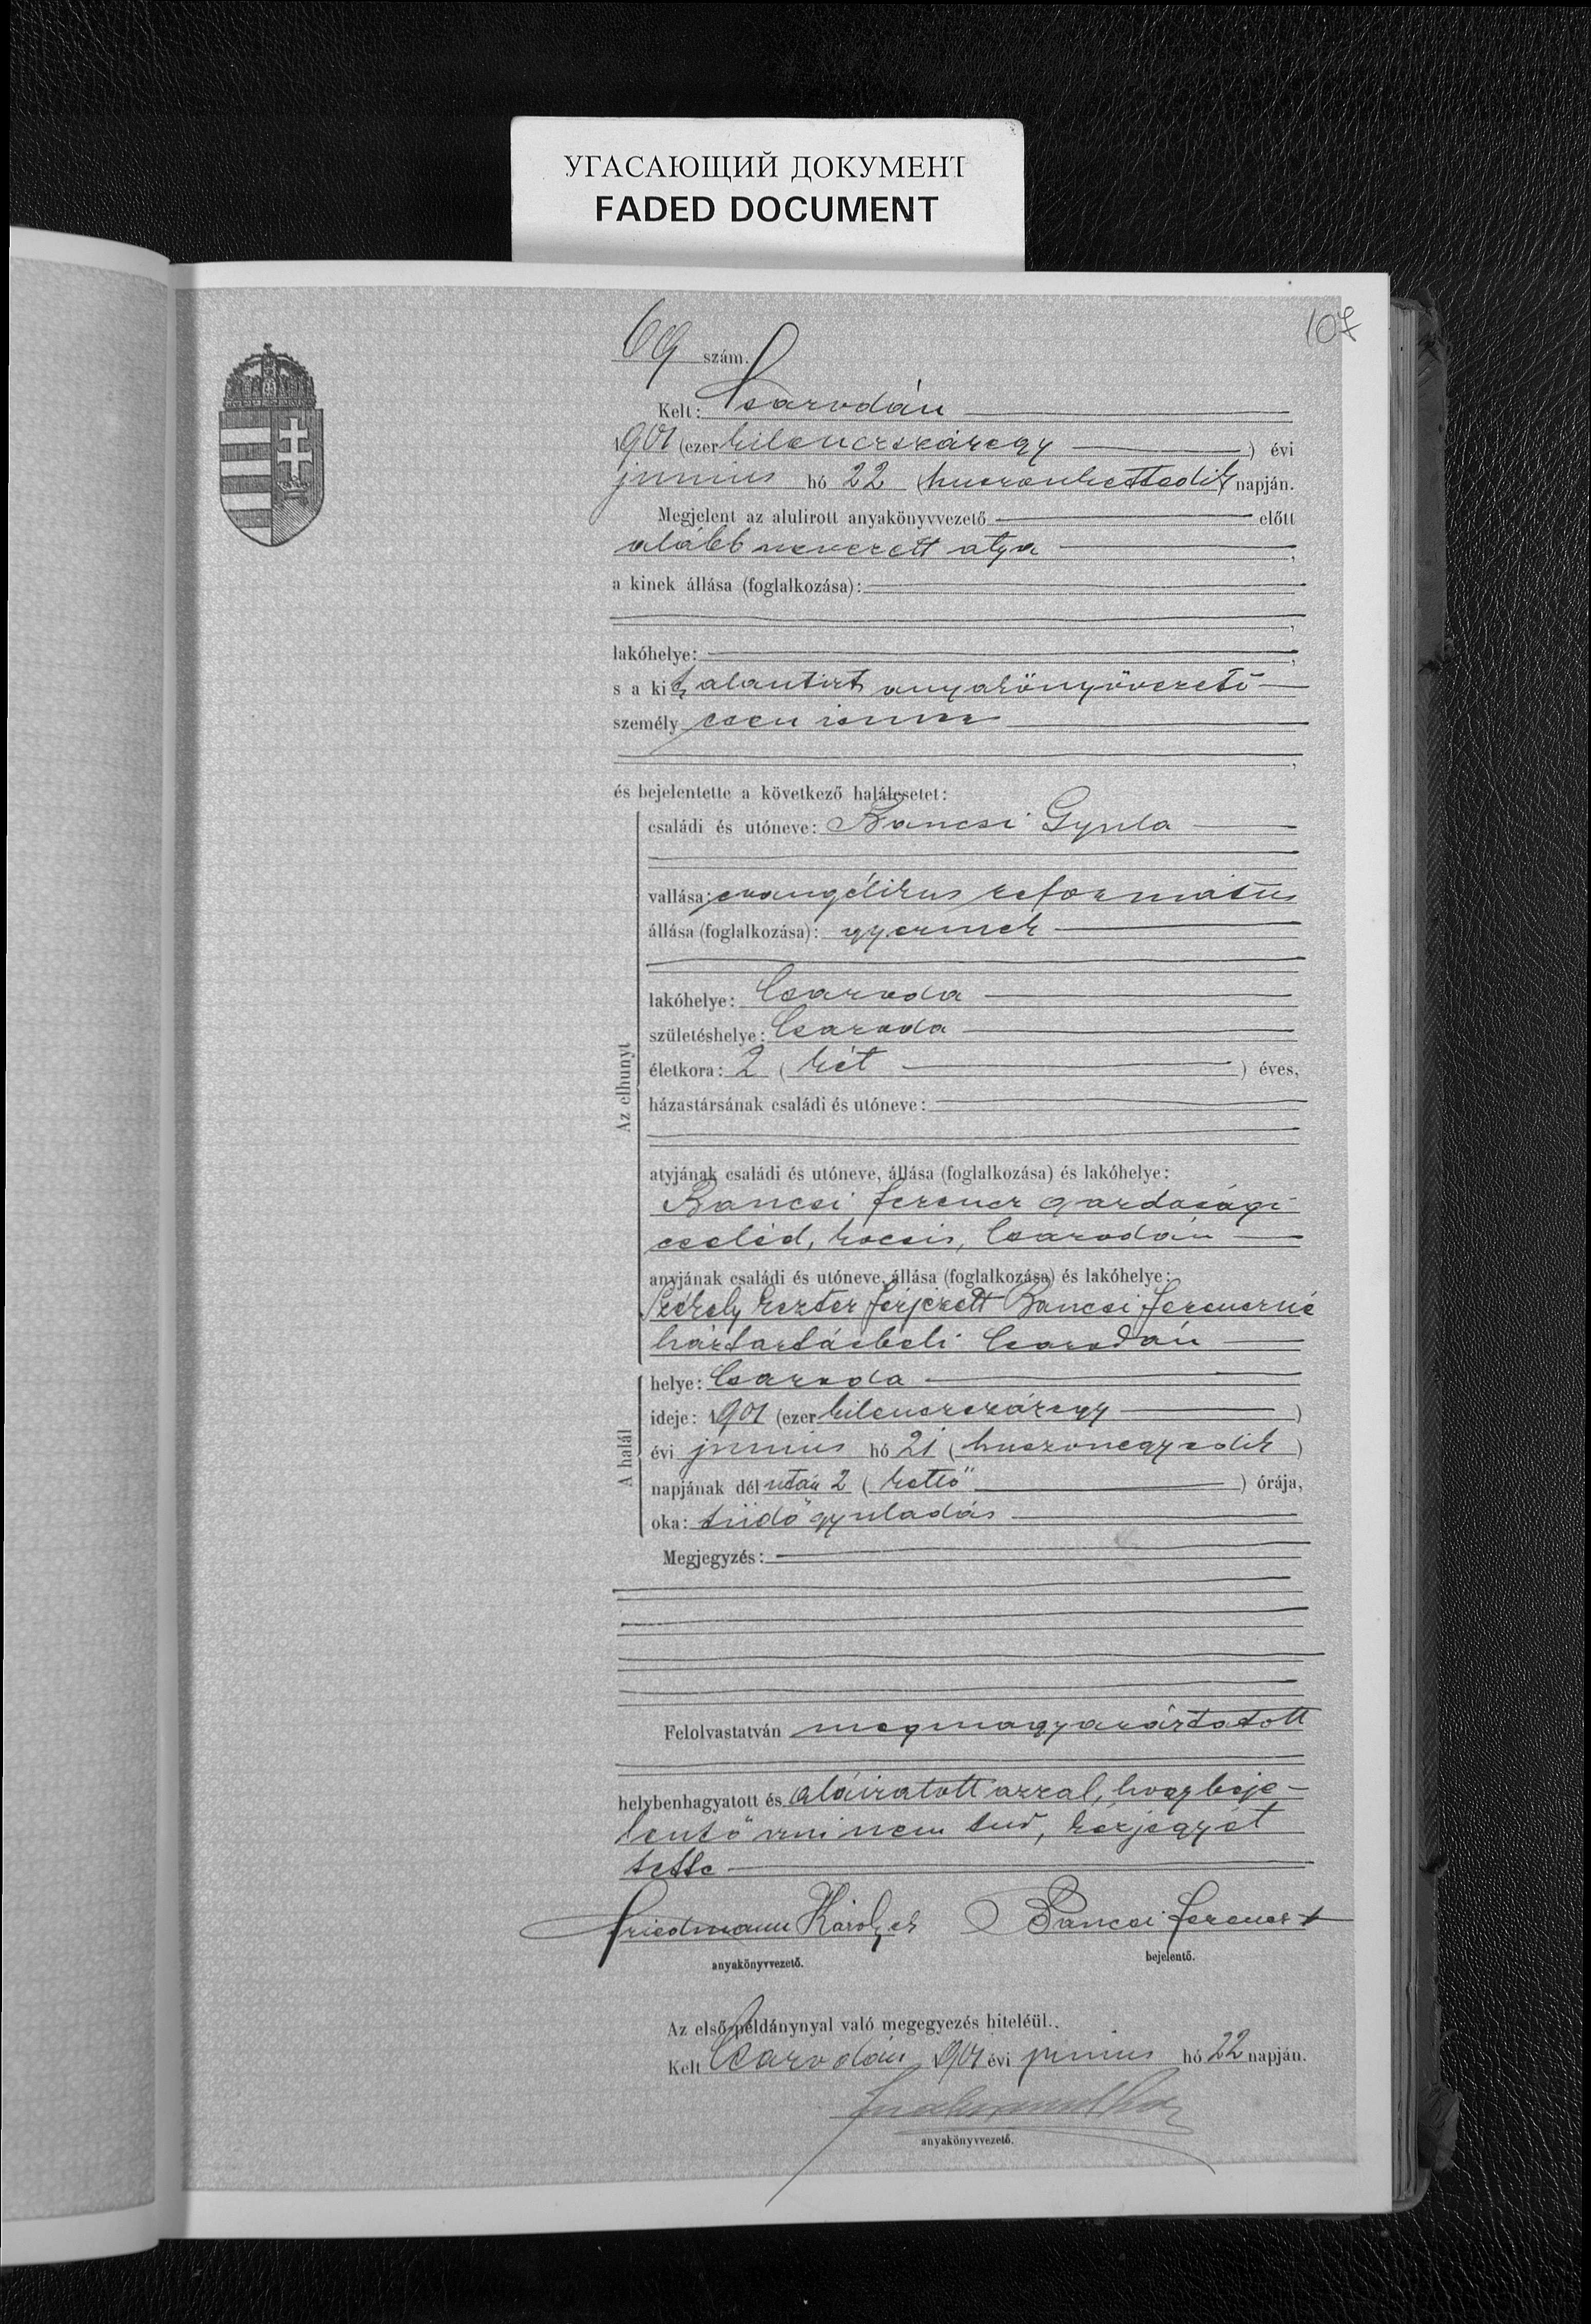 УГАСАЮЩИЙ ДОКУМЕНТ
FADED DOCUMENT
107
69 szám.
Kelt: Csarodán
1901 (ezer kilencszázegy) évi
junius hó 22 (huszonkettedik) napján.
Megjelent az alulirott anyakönyvvezető előtt
alább nevezett atya,
a kinek állása (foglalkozása):
lakóhelye:
s a kit alantirt anyakönyvvezető
személyesen ismer
és bejelentette a következő halálesetet:
Az elhunyt
családi és utóneve: Bancsi Gyula
vallása: evangélikus református
állása (foglalkozása): gyermek
lakóhelye: Csaroda
születéshelye: Csaroda
életkora: 2 (két) éves,
házastársának családi és utóneve:
atyjának családi és utóneve, állása (foglalkozása) és lakóhelye:
Bancsi Ferencz gazdasági
cseléd, kocsis, Csarodán
anyjának családi és utóneve, állása (foglalkozása) és lakóhelye:
Székely Eszter férjezett Bancsi Ferenczné
háztartásbeli Csarodán
A halál
helye: Csaroda
ideje: 1901 (ezer kilenczszázegy)
évi junius hó 21 (huszonegyedik)
napjának dél után 2 (kettő) órája,
oka: tüdőgyuladás
Megjegyzés:
Felolvastatván megmagyaráztatott
helybenhagyatott és aláiratott azzal, hogy beje-
lentő irni nem tud, kézjegyét
tette
Friedmann Károly Bancsi Ferencz +
anyakönyvvezető. bejelentő.
Az első példánynyal való megegyezés hiteléül.
Kelt Csarodán 1901 évi junius hó 22 napján.
anyakönyvvezető.